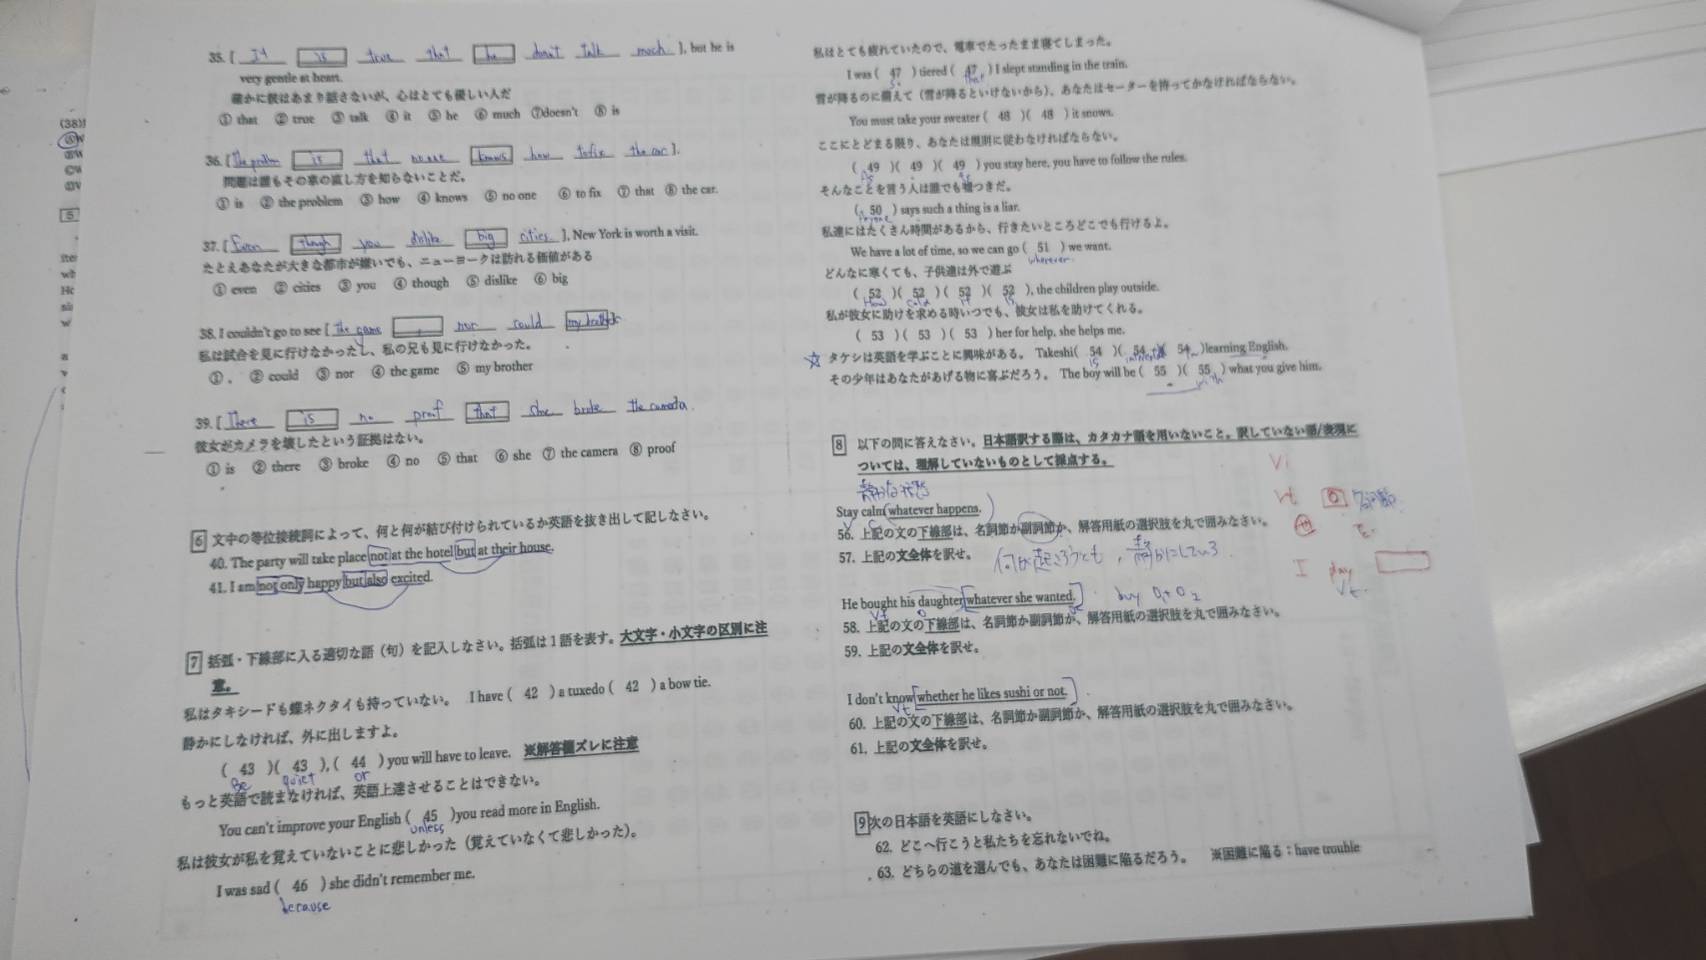 (38)
5
35. [ It is true that he don't talk much ], but he is
very gentle at heart.
確かに彼はあまり話さないが、心はとても優しい人だ
① that ② true ③ talk ④ it ⑤ he ⑥ much ⑦doesn't ⑧ is
36. [ The problem is that no one knows how to fix the car ].
問題は誰もその車の直し方を知らないことだ。
① is ② the problem ③ how ④ knows ⑤ no one ⑥ to fix ⑦ that ⑧ the car.
37. [ Even though you dislike big cities ], New York is worth a visit.
たとえあなたが大きな都市が嫌いでも、ニューヨークは訪れる価値がある
① even ② cities ③ you ④ though ⑤ dislike ⑥ big
38. I couldn't go to see [ the game , nor could my brother
私は試合を見に行けなかったし、私の兄も見に行けなかった。
① , ② could ③ nor ④ the game ⑤ my brother
39. [ There is no proof that she broke the camera.
彼女がカメラを壊したという証拠はない。
① is ② there ③ broke ④ no ⑤ that ⑥ she ⑦ the camera ⑧ proof
6 文中の等位接続詞によって、何と何が結び付けられているか英語を抜き出して記しなさい。
40. The party will take place not at the hotel but at their house.
41. I am not only happy but also excited.
7 括弧・下線部に入る適切な語（句）を記入しなさい。括弧は１語を表す。大文字・小文字の区別に注
意。
私はタキシードも蝶ネクタイも持っていない。 I have ( 42 ) a tuxedo ( 42 ) a bow tie.
静かにしなければ、外に出しますよ。
( 43 )( 43 ), ( 44 ) you will have to leave. ※解答欄ズレに注意
Be quiet or
もっと英語で読まなければ、英語上達させることはできない。
You can't improve your English ( 45 )you read more in English.
unless
私は彼女が私を覚えていないことに悲しかった（覚えていなくて悲しかった）。
I was sad ( 46 ) she didn't remember me.
because
私はとても疲れていたので、電車でたったまま寝てしまった。
I was ( 47 ) tiered ( 47 ) I slept standing in the train.
so that
雪が降るのに備えて（雪が降るといけないから）、あなたはセーターを持ってかなければならない。
You must take your sweater ( 48 )( 48 ) it snows.
ここにとどまる限り、あなたは規則に従わなければならない。
( 49 )( 49 )( 49 ) you stay here, you have to follow the rules.
As as
そんなことを言う人は誰でも嘘つきだ。
( 50 ) says such a thing is a liar.
私達にはたくさん時間があるから、行きたいところどこでも行けるよ。
We have a lot of time, so we can go ( 51 ) we want.
wherever
どんなに寒くても、子供達は外で遊ぶ
( 52 )( 52 )( 52 )( 52 ), the children play outside.
How cold it is
私が彼女に助けを求める時いつでも、彼女は私を助けてくれる。
( 53 )( 53 )( 53 ) her for help, she helps me.
☆ タケシは英語を学ぶことに興味がある。 Takeshi( 54 )( 54 )( 54 )learning English.
is interested in
その少年はあなたがあげる物に喜ぶだろう。 The boy will be ( 55 )( 55 ) what you give him.
with
8 以下の問に答えなさい。日本語訳する際は、カタカナ語を用いないこと。訳していない語/表現に
ついては、理解していないものとして採点する。
静かな状態
Stay calm whatever happens.
V C
56. 上記の文の下線部は、名詞節か副詞節か、解答用紙の選択肢を丸で囲みなさい。
57. 上記の文全体を訳せ。 何が起ころうとも，静かにしている.
He bought his daughter whatever she wanted. buy O₁ + O₂
Vt O
58. 上記の文の下線部は、名詞節か副詞節か、解答用紙の選択肢を丸で囲みなさい。
59. 上記の文全体を訳せ。
I don't know whether he likes sushi or not.
Vt
60. 上記の文の下線部は、名詞節か副詞節か、解答用紙の選択肢を丸で囲みなさい。
61. 上記の文全体を訳せ。
Vi
Vt O 名詞節
I play
Vt
9 次の日本語を英語にしなさい。
62. どこへ行こうと私たちを忘れないでね。
63. どちらの道を選んでも、あなたは困難に陥るだろう。 ※困難に陥る：have trouble